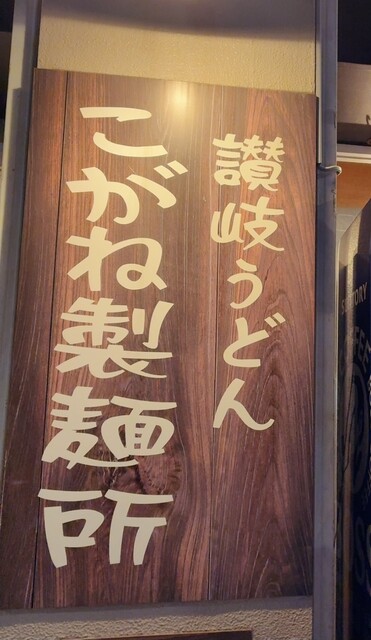 讃岐うどん
こがね製麺所